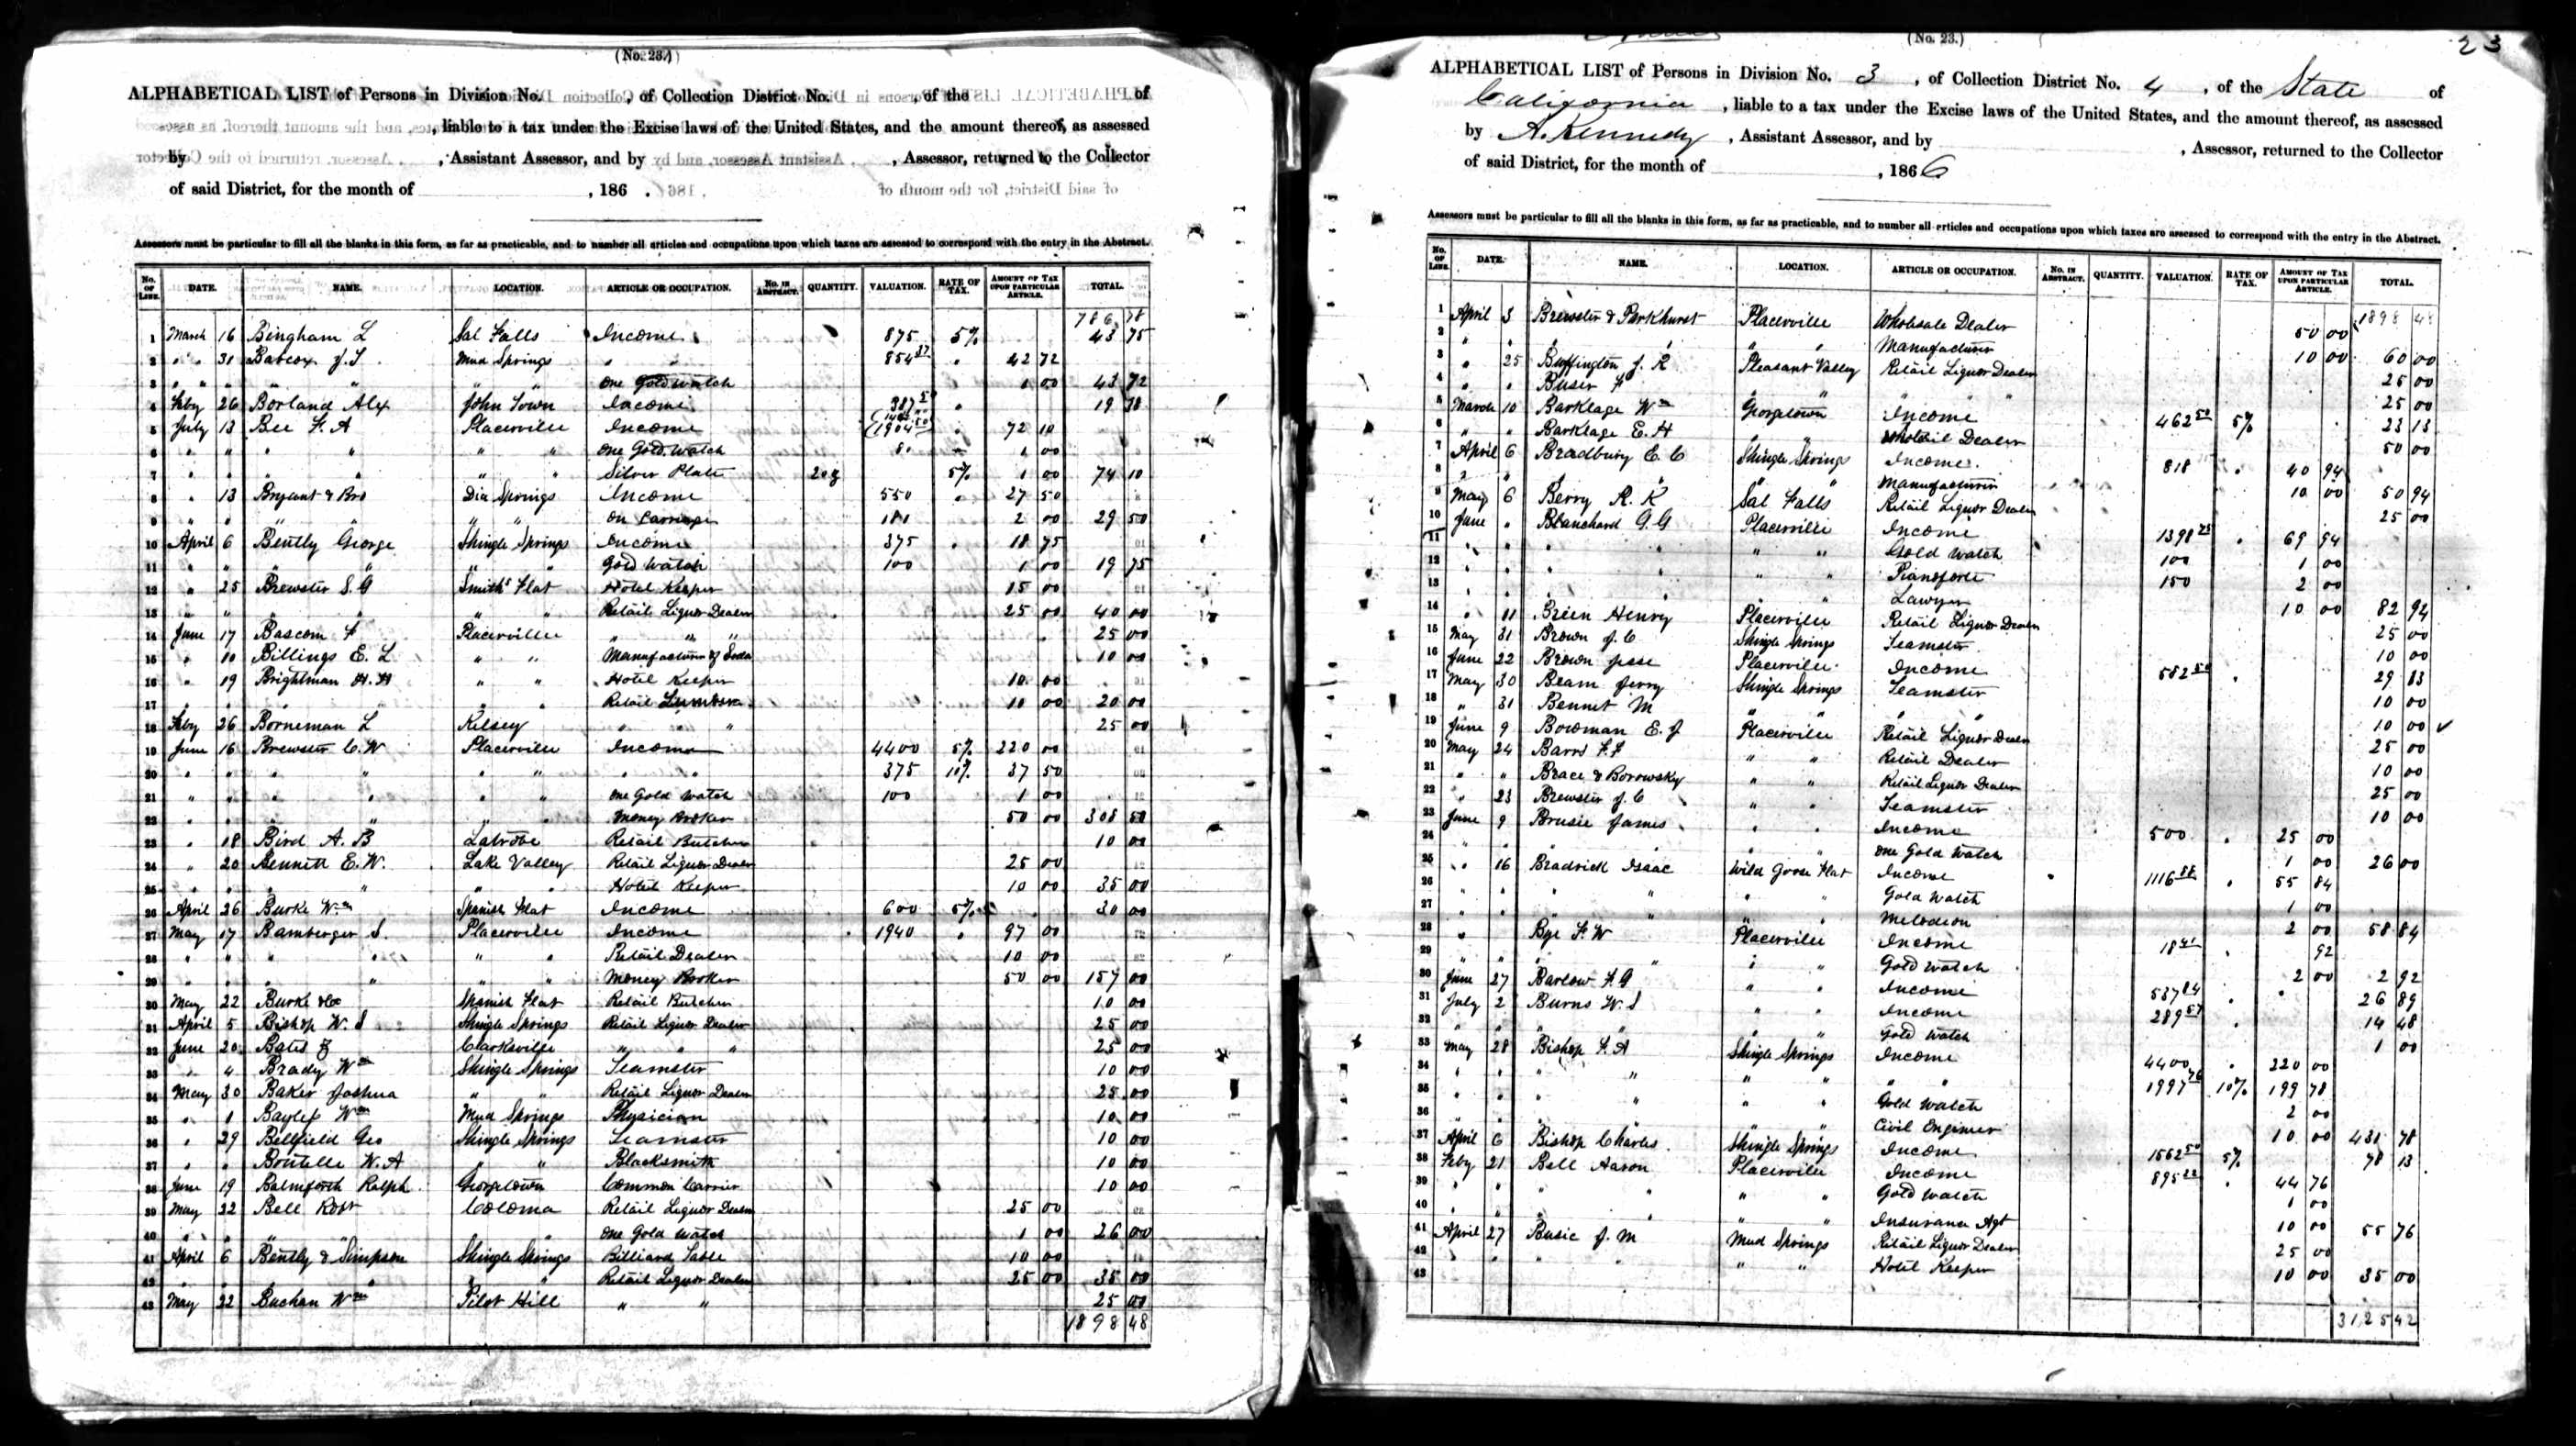 (No. 23.)
ALPHABETICAL LIST of Persons in Division No. , of Collection District No. , of the of
, liable to a tax under the Excise laws of the United States, and the amount thereof, as assessed
by , Assistant Assessor, and by , Assessor, returned to the Collector
of said District, for the month of , 186 .
Assessors must be particular to fill all the blanks in this form, as far as practicable, and to number all articles and occupations upon which taxes are assessed to correspond with the entry in the Abstract.
No. OF LINE. DATE. NAME. LOCATION. ARTICLE OR OCCUPATION. No. IN ABSTRACT. QUANTITY. VALUATION. RATE OF TAX. AMOUNT OF TAX UPON PARTICULAR ARTICLE. TOTAL.
786 38
1 March 16 Bingham L Sal Falls Income 875 5% 43 75
2 " " 31 Babcox J. S. Mud Springs " " 854 37 42 72
3 " " " " " " One Gold watch 1 00 43 72
4 Feby 26 Borland Alex John Town Income 387 5 " 19 38
5 July 13 Bee F. A Placerville Income " 72 10
6 " " " " " " One Gold Watch 1 00
7 " " " " " " Silver Plate 20 5% 1 00 74 10
8 " 13 Bryant & Bro Dia Springs Income 550 " 27 50
9 " " " " " " On Carriage 181 2 00 29 50
10 April 6 Bently George Shingle Springs Income 375 " 18 75
11 " " " " " " Gold Watch 100 1 00 19 75
12 " 25 Brewster S. G Smiths Flat Hotel Keeper 15 00
13 " " " " " " Retail Liquor Dealer 25 00 40 00
14 June 17 Bascom F Placerville " " " 25 00
15 " 10 Billings E. L " " Manufacturer of Soda 10 00
16 " 19 Brightman H. H " " Hotel Keeper 10 00
17 " " " " " " Retail 10 00 20 00
18 Feby 26 Borneman L Kelsey " " " 25 00
19 June 16 Brewster C. W Placerville Income 4400 5% 220 00
20 " " " " " " " " 375 10% 37 50
21 " " " " " " One Gold Watch 100 1 00
22 " " " " " " Money Broker 50 00 308 50
23 " 18 Bird A. B Latrobe Retail Butcher 10 00
24 " 20 Bennett E. W. Lake Valley Retail Liquor Dealer 25 00
25 " " " " " " Hotel Keeper 10 00 35 00
26 April 26 Burke Wm Spanish Flat Income 600 5% 30 00
27 May 17 Bamberger S. Placerville Income 1940 " 97 00
28 " " " " " " Retail Dealer 10 00
29 " " " " " " Money Broker 50 00 157 00
30 May 22 Burke &Co Spanish Flat Retail Butcher 10 00
31 April 5 Bishop W. S Shingle Springs Retail Liquor Dealer 25 00
32 June 20 Bates Clarksville " " " 25 00
33 " 4 Brady Wm Shingle Springs Teamster 10 00
34 May 30 Baker Joshua " " Retail Liquor Dealer 25 00
35 " 1 Bayley Wm Mud Springs Physician 10 00
36 " 29 Bellfield Geo Shingle Springs Teamster 10 00
37 " " Boutelle W. A " " Blacksmith 10 00
38 June 19 Balmforth Ralph Georgetown Common Carrier 10 00
39 May 22 Bell Robt Coloma Retail Liquor Dealer 25 00
40 " " " " " One Gold Watch 1 00 26 00
41 April 6 Bently & Simpson Shingle Springs Billiard Table 10 00
42 " " " " " " Retail Liquor Dealer 25 00 35 00
43 May 22 Buchan Wm Pilot Hill " " 25 00
1898 48
(No. 23.)
23
ALPHABETICAL LIST of Persons in Division No. 3 , of Collection District No. 4 , of the State of
California , liable to a tax under the Excise laws of the United States, and the amount thereof, as assessed
by A. Kennedy , Assistant Assessor, and by , Assessor, returned to the Collector
of said District, for the month of , 1866
Assessors must be particular to fill all the blanks in this form, as far as practicable, and to number all articles and occupations upon which taxes are assessed to correspond with the entry in the Abstract.
No. OF LINE. DATE. NAME. LOCATION. ARTICLE OR OCCUPATION. No. IN ABSTRACT. QUANTITY. VALUATION. RATE OF TAX. AMOUNT OF TAX UPON PARTICULAR ARTICLE. TOTAL.
1898 48
1 April 3 Brewster & Parkhurst Placerville Wholesale Dealer 50 00
2 " " " " " " Manufacturer 10 00 60 00
3 " 25 Buffington J. R Pleasant Valley Retail Liquor Dealer 25 00
4 " " Buser F " " " " 25 00
5 March 10 Barklage Wm Georgetown Income 462 50 5% 23 13
6 " " Barklage E. H " " Dealer 50 00
7 April 6 Bradbury C. C Shingle Springs Income 818 " 40 94
8 " " " " " " Manufacturer 10 00 50 94
9 May 6 Berry R. K Sal Falls Retail Liquor Dealer 25 00
10 June " Blanchard G. G Placerville Income 1398 75 " 69 94
11 " " " " " " Gold Watch 100 1 00
12 " " " " " " Pianoforte 150 2 00
13 " " " " " " Lawyer 10 00 82 94
14 " 11 Breen Henry Placerville Retail Liquor Dealer 25 00
15 May 31 Brown J. C Shingle Springs Teamster 10 00
16 June 22 Brown Jesse Placerville Income 582 50 " 29 13
17 May 30 Beam Jerry Shingle Springs Teamster 10 00
18 " 31 Bennet M " " " " 10 00
19 June 9 Bowman E. J Placerville Retail Liquor Dealer 25 00
20 May 24 Barss F. F " " Retail Dealer 10 00
21 " " Brace & Borowsky " " Retail Liquor Dealer 25 00
22 " 23 Brewster J. C " " Teamster 10 00
23 June 9 Brusie James " " Income 500 " 25 00
24 " " " " " " One Gold Watch 1 00 26 00
25 " 16 Bradrick Isaac Wild Goose Flat Income 1116 88 " 55 84
26 " " " " " " Gold Watch 1 00
27 " " " " " " Melodeon 2 00 58 84
28 " Bye F. W Placerville Income 18 41 " 92
29 " " " " " " Gold Watch 2 00 2 92
30 June 27 Barlow F. G " " Income 537 84 " 26 89
31 July 2 Burns W. S " " Income 289 57 " 14 48
32 " " " " " " Gold Watch 1 00
33 May 28 Bishop F. A Shingle Springs Income 4400 " 220 00
34 " " " " " " " " 1997 76 10% 199 78
35 " " " " " " Gold Watch 2 00
36 " " " " " " Civil Engineer 10 00 431 78
37 April 6 Bishop Charles Shingle Springs Income 1562 50 5% 78 13
38 Feby 21 Bell Aaron Placerville Income 895 22 " 44 76
39 " " " " " " Gold Watch 1 00
40 " " " " " " Insurance Agt 10 00 55 76
41 April 27 Busie J. M Mud Springs Retail Liquor Dealer 25 00
42 " " " " " " Hotel Keeper 10 00 35 00
43
3125 42